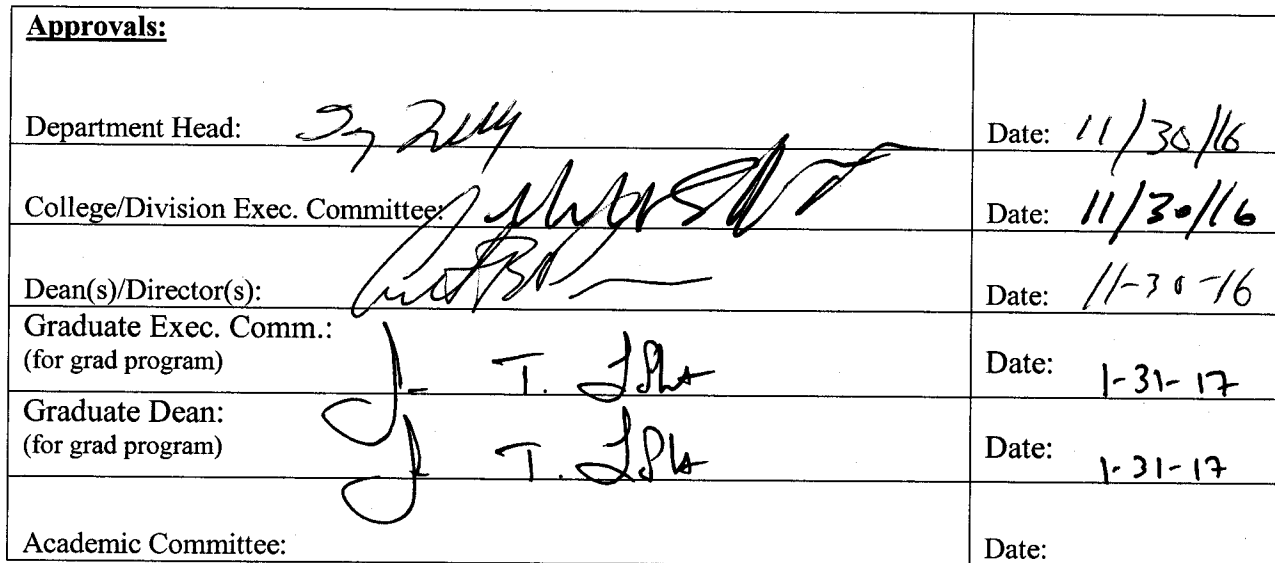 Approvals:
Department Head: Date: 11/30/16
College/Division Exec. Committee: Date: 11/30/16
Dean(s)/Director(s): Date: 11-30-16
Graduate Exec. Comm.:
(for grad program) Date: 1-31-17
Graduate Dean:
(for grad program) Date: 1-31-17
Academic Committee: Date: